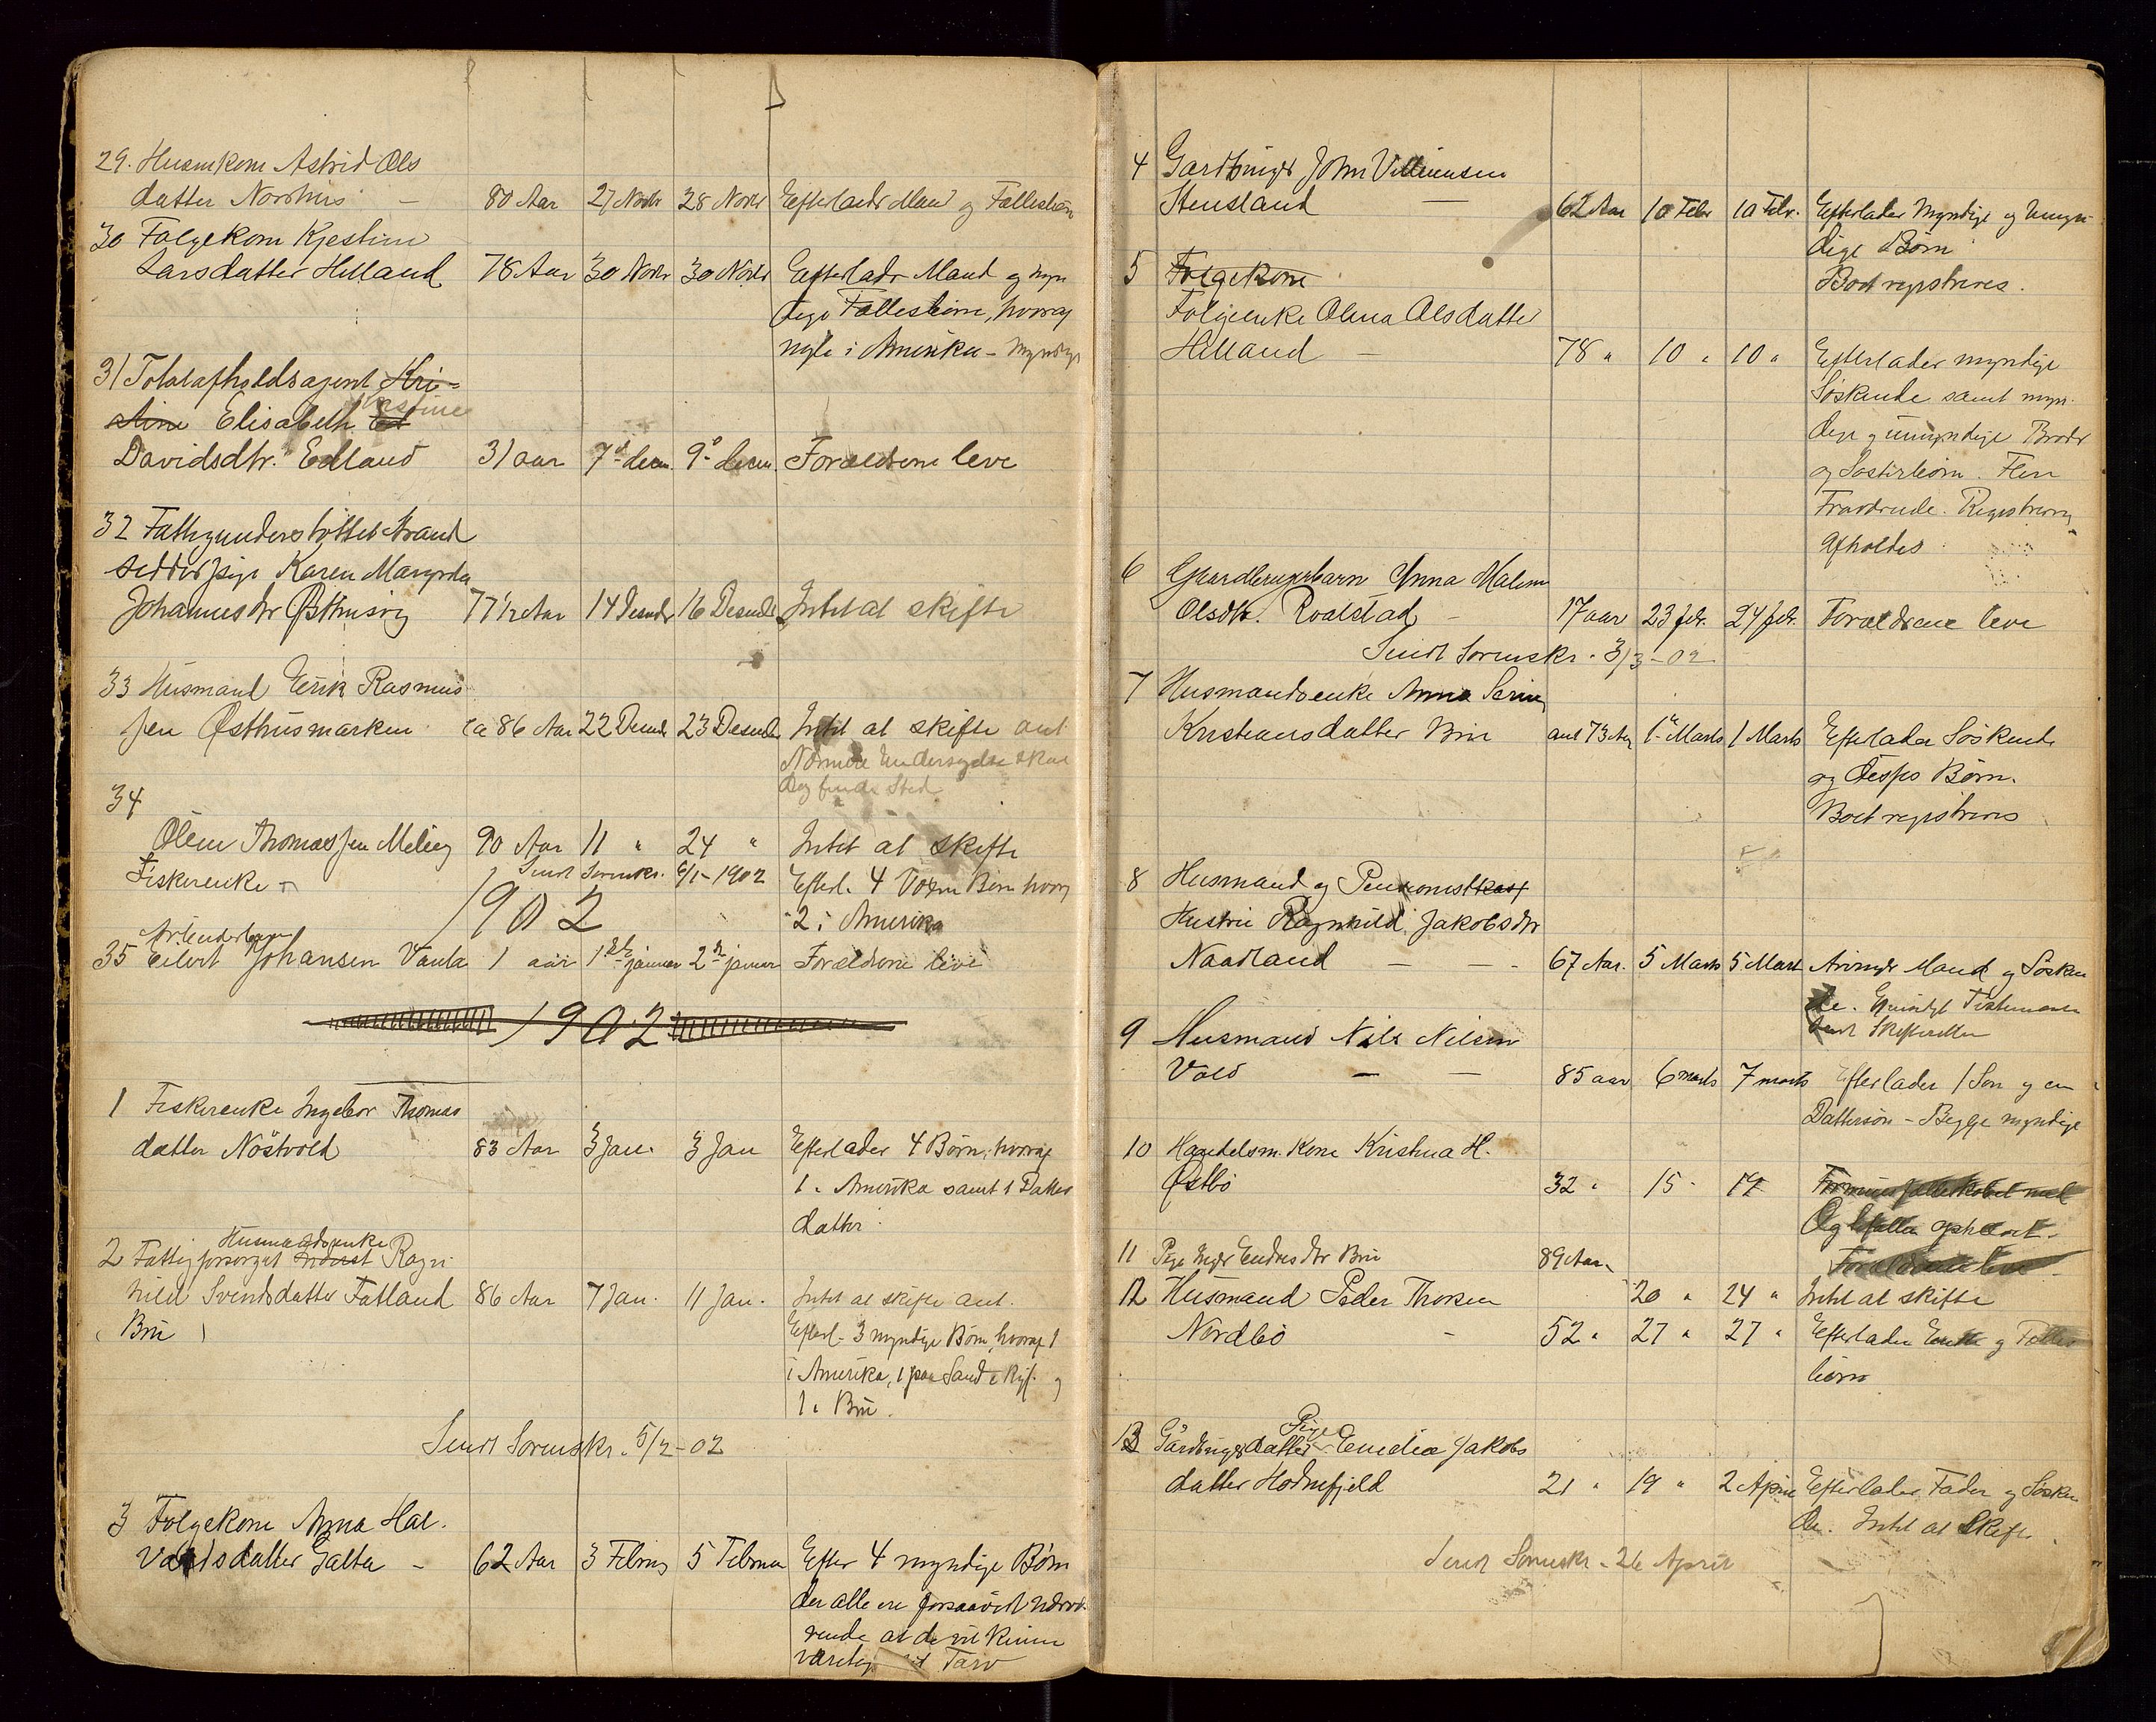 29. Husmkone Astrid Ols
datter Norshus — 80 Aar 27 Novbr 28 Novbr Efterlader Mand og Fællesbørn
30 Følgekone Kjestine
Larsdatter Helland 78 Aar 30 Novbr 30 Novbr Efterlader Mand og myn
dige Fællesbørn, hvoraf
nogle i Amerika – Myndige
31 Totalafholdsagent Kri-
stine Elisabeth Ed Kirstine
Davidsdtr. Edland 31 aar 7d decem. 9d decem. Forældrene leve
32 Fattigunderstøttet Strand
sidderpige Karen Margrete
Johannesdtr Østhusvig 77 1/2 Aar 14 Desembr 16 Desembr Intet at skifte
33 Husmand Eerik Rasmus
sen Østhusmarken ca 86 Aar 22 Desembr 23 Desembr Intet at skifte ant.
Nærmere Undersøgelse skal
dog finde Sted
34
Olene Thomassen Meling 90 Aar 11 " 24 " Intet at skifte
Fiskerenke Sendt Sorenskr. 6/1-1902 Efterl. 4 Voxne Børn hvoraf
1902 2 i Amerika
Arbeiderbarn
35 Eilert Johansen Vaula 1 aar 1ste januar 2n januar Forældrene leve
1902
1 Fiskerenke Ingebor Thomas
datter Nøstvold 83 Aar 3 Jan. 3 Jan Efterlader 4 Børn, hvoraf
1 i Amerika samt 1 Datter
datter.
Husmandsenke
2 Fattigforsørget Inderst Ragn
hild Svendsdatter Fatland 86 Aar 7 Jan. 11 Jan. Intet at skifte ant.
( Bru ) Efterl. 3 myndige Børn, hvoraf 1
i Amerika, 1 paa Sand i Ryf. og
1 i Bru.
Sendt Sorenskr. 5/2-02
3 Følgekone Anna Hal.
vardsdatter Galta – 62 Aar 3 Februar 5 Februar Efter 4 myndige Børn
der alle ere forsaavidt nærvæ-
rende at de vil kunne
varetage sit Tarv
4 Gardbruger John Villumsen
Stensland — 62 Aar 10 Febr 10 Febr. Efterlader Myndige og Umyn-
dige Børn
Boet registreres.
5 Følgekone
Følgeenke Olena Olsdatter
Helland — 78 " 10 " 10 " Efterlader myndige
Søskende samt myn-
dige og umyndige Broder
og Søsterbørn. Flere
Fraværende. Registrering
afholdes
6 Gaardbrugerbarn Anna Malene
Olsdtr. Roalstad – 17 aar 23 febr. 24 febr. Forældrene leve
Sendt Sorenskr. 3/3-02
7 Husmandsenke Anna Serine
Kristiansdatter Bru ant 73 Aar 1ste Marts 1 Marts Efterlader Søskende
og Disses Børn.
Boet registreres
8 Husmand og Pensionist
Hustru Ragnhild Jakobsdtr
Naadland — — 67 Aar. 5 Marts 5 Marts Arvinger Mand og Søsken
de. Testamente
Skifteretten
9 Husmand Nils Nilsen
Vold — — 85 aar 6 marts 7 marts Efterlader 1 Søn og en
Dattersøn – Begge myndige
10 Handelsm. Kone Kristina H.
Østbø 32 " 15 " 17 Formuesfællesskabet med
Og ophævet.
11 Pige Endresdtr Bru 89 Aar. Forældrene leve
12 Husmand Peder Thorsen 20 " 24 " Intet at skifte
Nordbø – 52 " 27 " 27 " Efterlader Enke og Fælles
børn
Pige
13 Gårdbrugerdatter Emelia Jakobs
datter Hodnefjeld 21 " 19 " 2 April Efterlader Fader og Søsken
de. Intet at skifte.
Sendt Sorenskr. 26 April